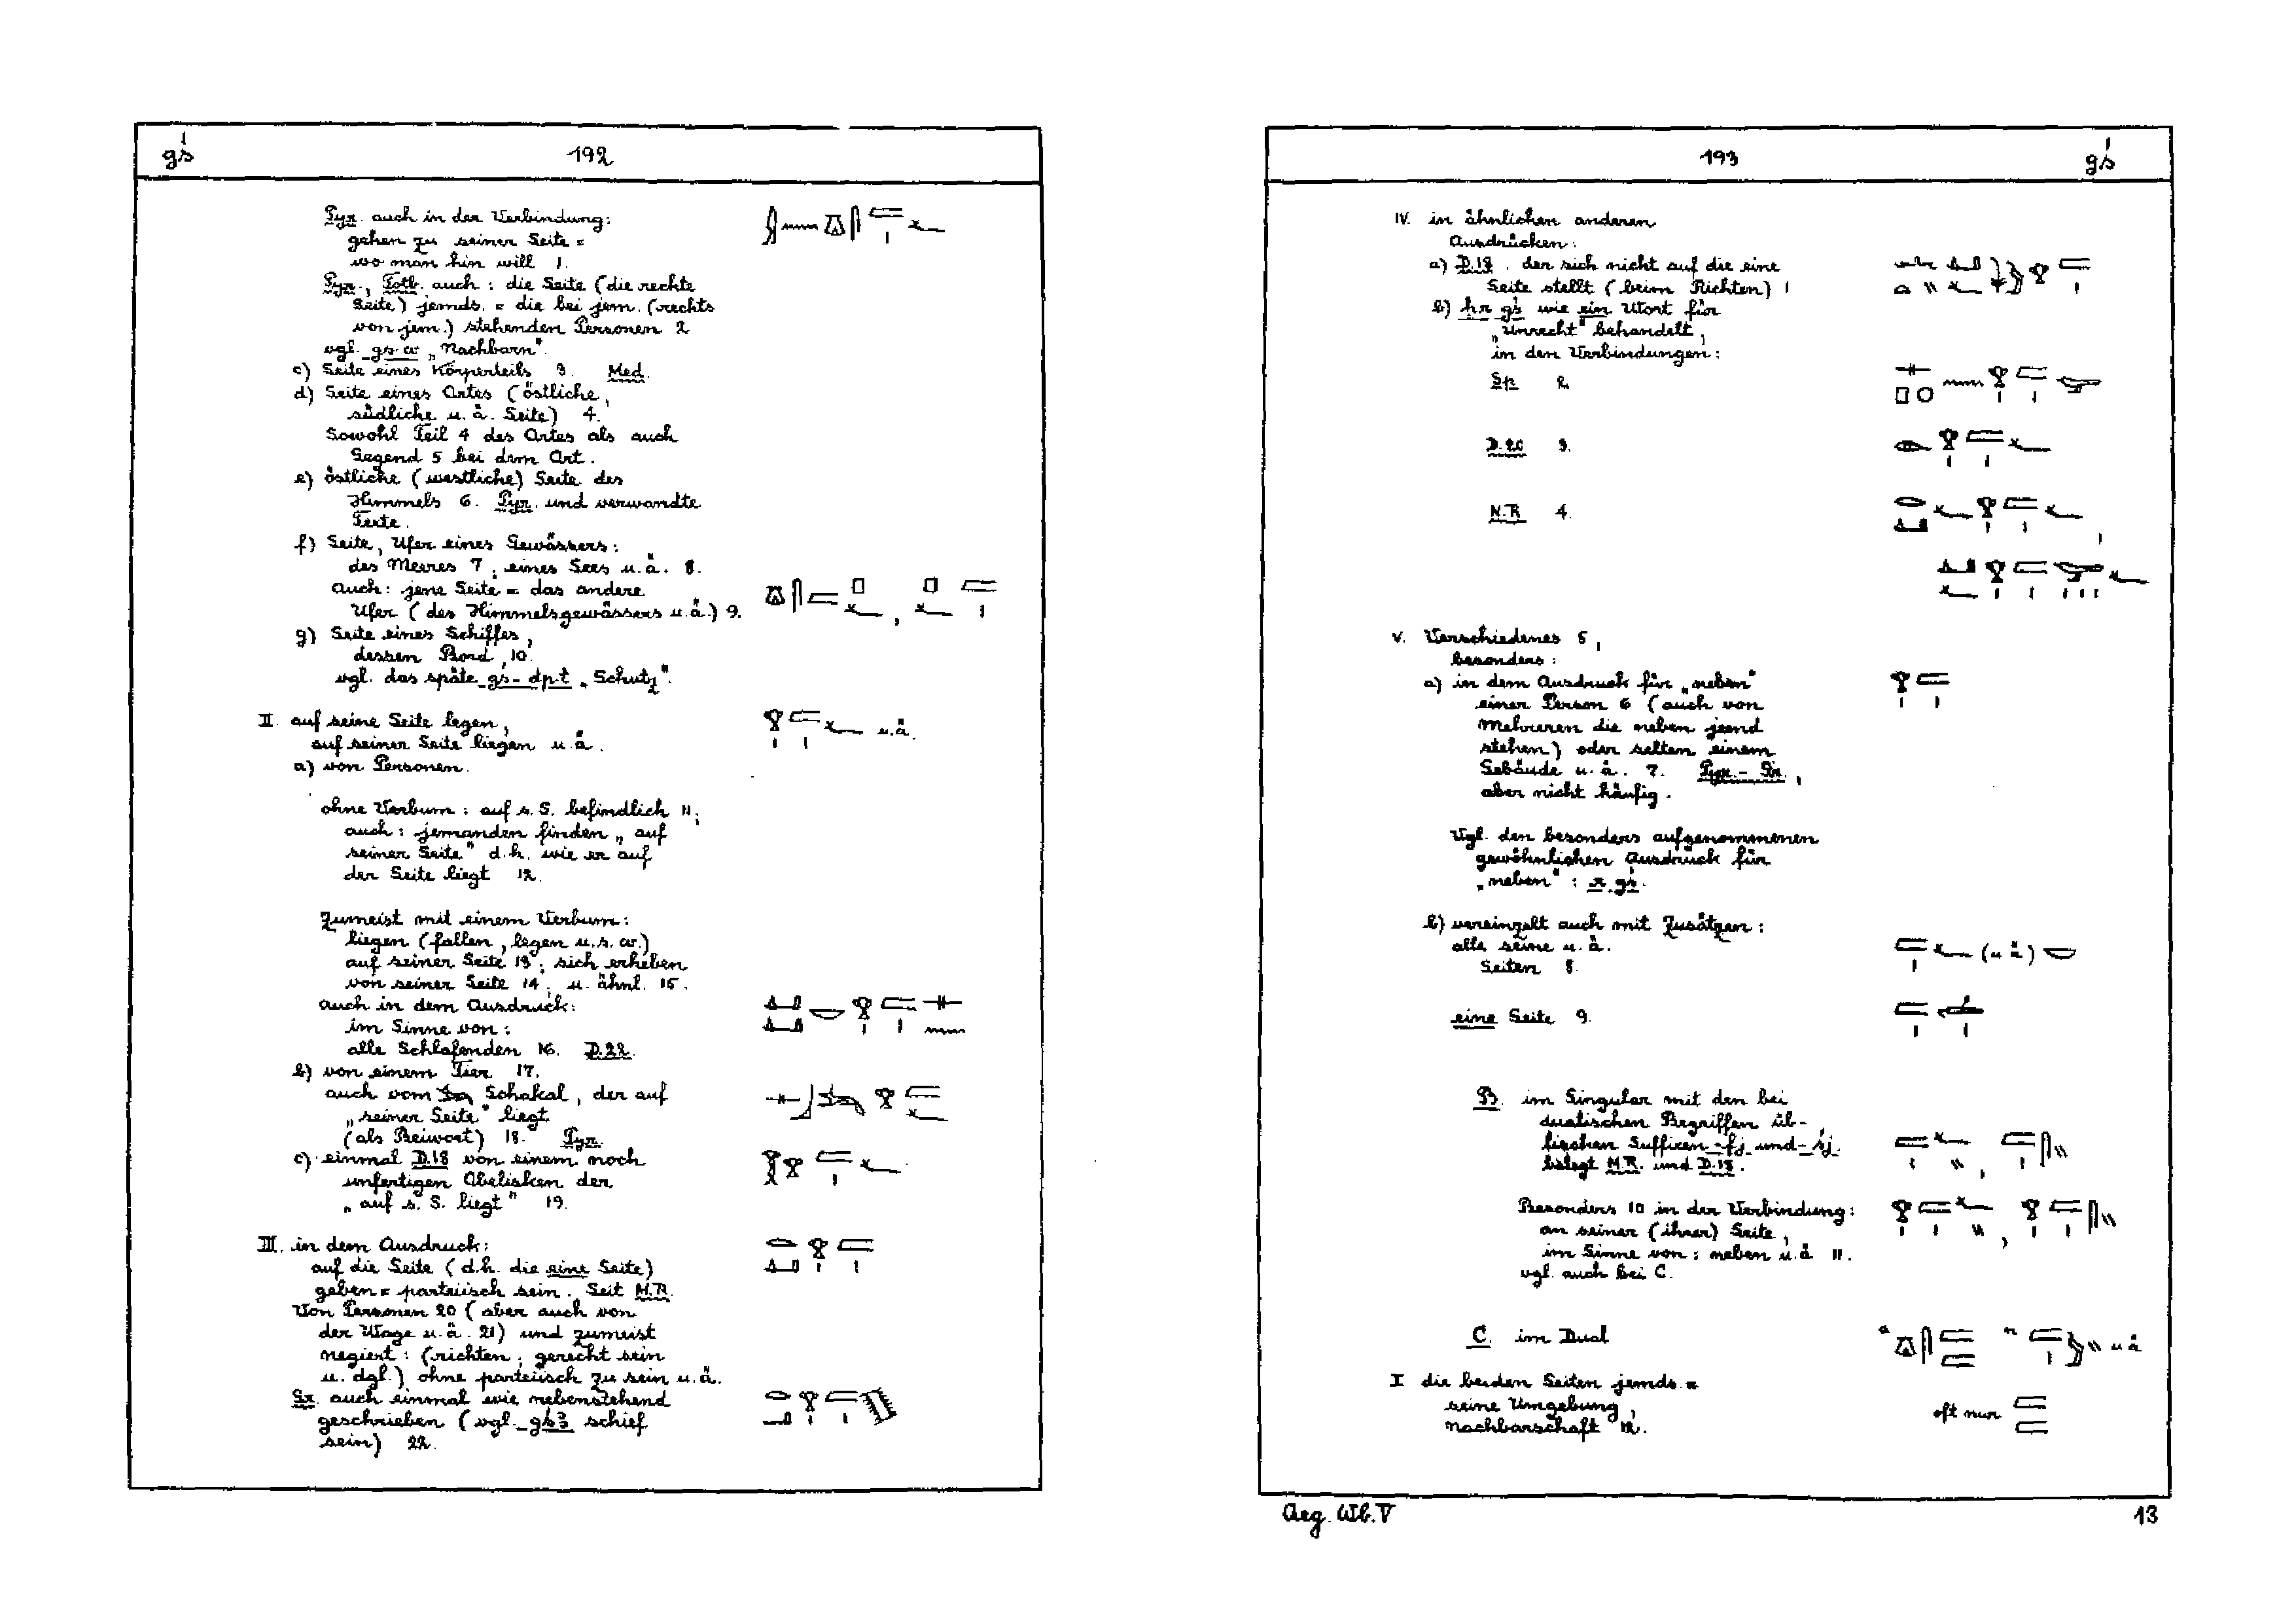 gś
192
Pyr. auch in der Verbindung:
gehen zu seiner Seite =
wo man hin will 1.
Pyr., Totb. auch: die Seite (die rechte
Seite) jemds. = die bei jem. (rechts
von jem.) stehenden Personen 2
vgl. gs.w „Nachbarn".
c) Seite eines Körperteils 3. Med.
d) Seite eines Ortes (östliche,
südliche u. ä. Seite) 4.
Sowohl Teil 4 des Ortes als auch
Gegend 5 bei dem Ort.
e) östliche (westliche) Seite des
Himmels 6. Pyr. und verwandte
Texte.
f) Seite, Ufer eines Gewässers:
des Meeres 7; eines Sees u. ä. 8.
Auch: jene Seite = das andere
Ufer (des Himmelsgewässers u. ä.) 9.
g) Seite eines Schiffes,
dessen Bord 10.
vgl. das späte gś-dp.t „Schutz".
II. auf seine Seite legen,
auf seiner Seite liegen u. ä.
u. ä.
a) von Personen.
ohne Verbum: auf s. S. befindlich 11;
auch: jemanden finden „auf
seiner Seite" d. h. wie er auf
der Seite liegt 12.
Zumeist mit einem Verbum:
liegen (fallen, legen u. s. w.)
auf seiner Seite 13; sich erheben
von seiner Seite 14; u. ähnl. 15.
auch in dem Ausdruck:
im Sinne von:
alle Schlafenden 16. D.22.
b) von einem Tier 17.
auch vom Schakal, der auf
„seiner Seite" liegt
(als Beiwort) 18. Pyr.
c) einmal D.18 von einem noch
unfertigen Obelisken der
„auf s. S. liegt" 19.
III. in dem Ausdruck:
auf die Seite (d.h. die eine Seite)
geben = parteiisch sein. Seit M.R.
Von Personen 20 (aber auch von
der Wage u. ä. 21) und zumeist
negiert: (richten, gerecht sein
u. dgl.) ohne parteiisch zu sein u. ä.
Gr. auch einmal wie nebenstehend
geschrieben (vgl. gśꜣ schief
sein) 22.
193
gś
IV. in ähnlichen anderen
Ausdrücken:
a) D.18. der sich nicht auf die eine
Seite stellt (beim Richten) 1
b) ḥr gś wie ein Wort für
„Unrecht" behandelt,
in den Verbindungen:
Sp. 2.
D.20 3.
N.R. 4.
V. Verschiedenes 5,
besonders:
a) in dem Ausdruck für „neben"
einer Person 6 (auch von
Mehreren die neben jemd
stehen) oder selten einem
Gebäude u. ä. 7. Pyr. - Gr.,
aber nicht häufig.
Vgl. den besonders aufgenommenen
gewöhnlichen Ausdruck für
„neben": r gś.
b) vereinzelt auch mit Zusätzen:
alle seine u. ä.
Seiten 8.
(u. ä)
eine Seite 9.
B. im Singular mit den bei
dualischen Begriffen üb-
lischen Suffixen -fj und -śj.
belegt M.R. und D.18.
Besonders 10 in der Verbindung:
an seiner (ihrer) Seite,
im Sinne von: neben u. ä 11.
vgl. auch bei C.
C. im Dual
u. ä
I die beiden Seiten jemds. =
seine Umgebung,
Nachbarschaft 12.
oft nur
Aeg. Wb. V
13